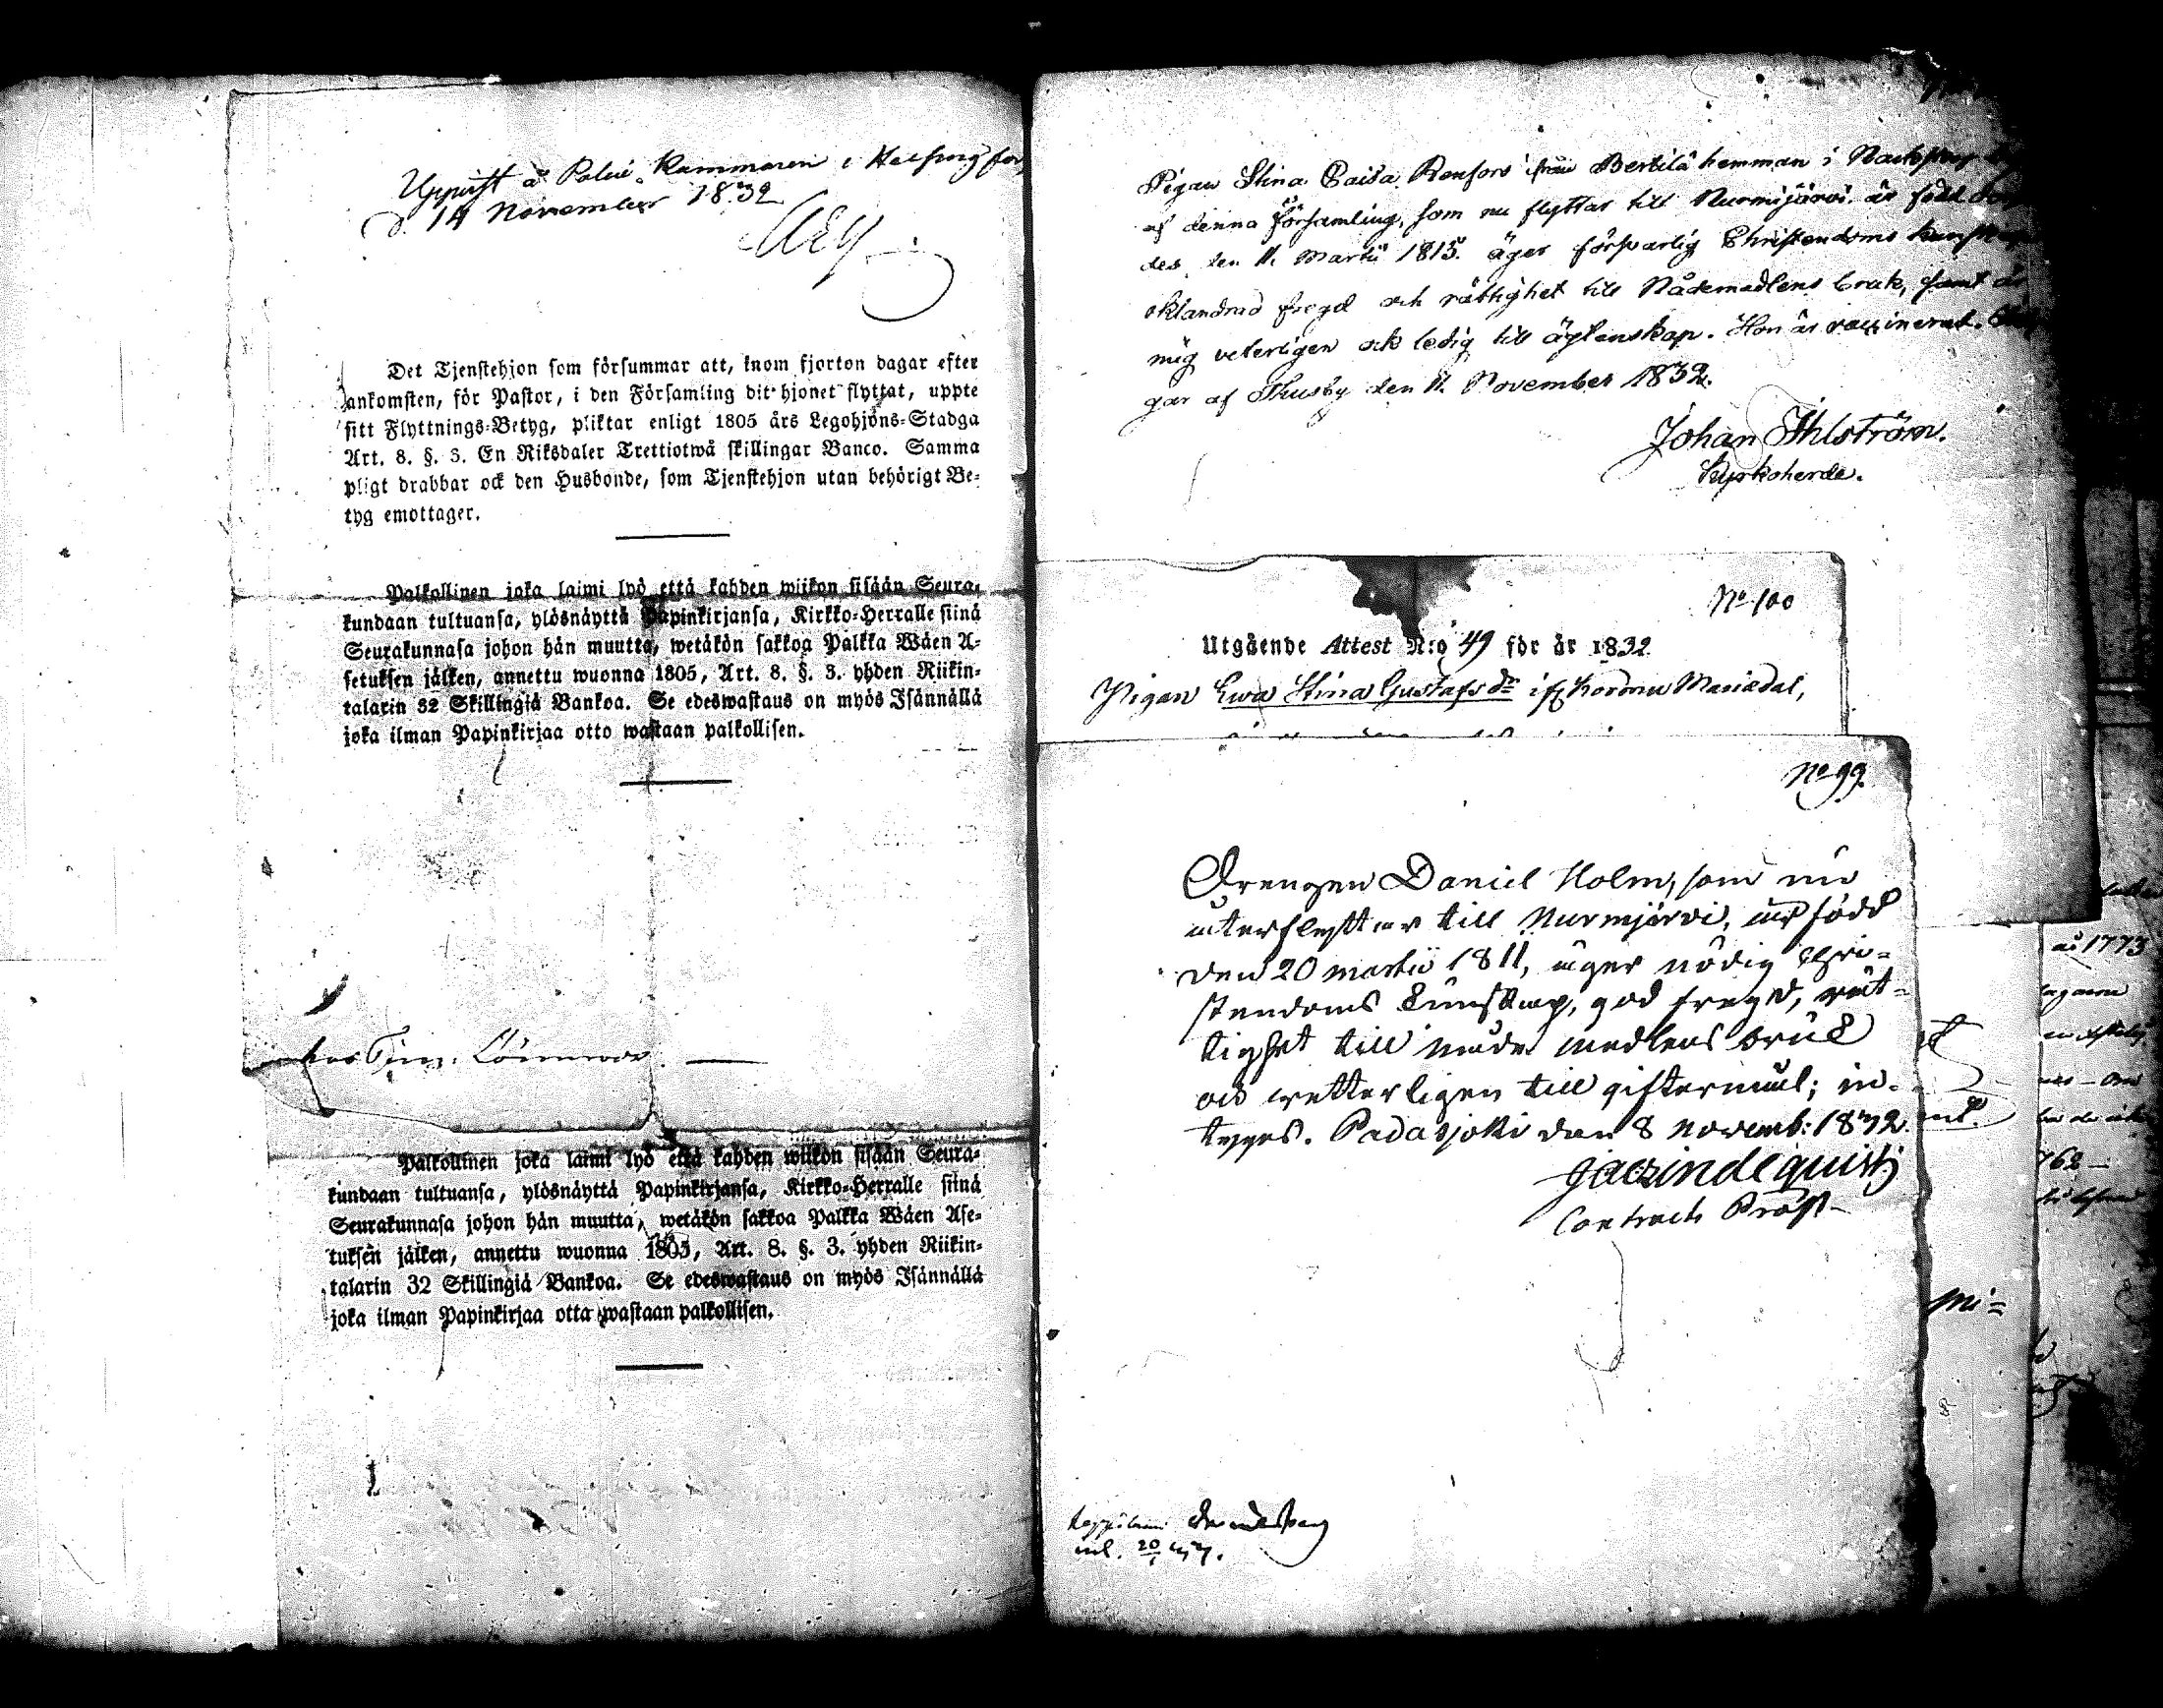 Uppvist å Police Kammaren i Helsingfors
d. 14 November 1832
Det Tjenstehjon som försummar att, inom fjorton dagar efter
ankomsten, för Pastor, i den Församling dit hjonet flyttat, uppte
sitt Flyttnings-Betyg, pliktar enligt 1805 års Legohjons-Stadga
Art. 8. §. 3. En Riksdaler Trettiotwå skillingar Banco. Samma
pligt drabbar ock den Husbonde, som Tjenstehjon utan behörigt Be-
tyg emottager.
Palkollinen joka laimi lyö että kahden wiikon sisään Seura-
kundaan tultuansa, ylösnäyttä Papinkirjansa, Kirkko-Herralle siinä
Seurakunnasa johon hän muutta, wetäkön sakkoa Palkka Wäen A-
setuksen jälken, annettu wuonna 1805, Art. 8. §. 3. yhden Riikin-
talarin 32 Skillingiä Bankoa. Se edeswastaus on myös Isännällä
joka ilman Papinkirjaa otto wastaan palkollisen.
Palkollinen joka laimi lyö että kahden wiikon sisään Seura-
kundaan tultuansa, ylösnäyttä Papinkirjansa, Kirkko-Herralle siinä
Seurakunnasa johon hän muutta, wetäkön sakkoa Palkka Wäen Ase-
tuksen jälken, annettu wuonna 1805, Art. 8. §. 3. yhden Riikin-
talarin 32 Skillingiä Bankoa. Se edeswastaus on myös Isännällä
joka ilman Papinkirjaa otta wastaan palkollisen.
Pigan Stina Caisa Renfors ifrån Bertilä hemman i
af denna Församling, som nu flyttar till Nurmijärvi, är född
des den 11 Martii 1815. äger försvarlig Christendoms kunskap
oklandrad fregd och rättighet till Nådemedlens bruk, samt är
mig veterligen ock ledig till ägtenskap. Hon är vaccinerad.
gar af Thusby den 11 November 1832.
Johan Ihlström.
Kyrkoherde.
No 100
Utgående Attest N:o 49 för år 1832
Pigan Ewa Stina Gustafsdr ifr. Mariedal,
No 99.
Drengen Daniel Holm, som nu
återflyttar till Nurmjärvi, är född
den 20 martii 1811, äger nödig chri-
stendoms kunskap, god fregd, rät-
tighet till nåde medlens bruk
och wetterligen till giftermål; in-
tygas. Padasjoki den 8 novemb: 1832.
Contracts Prost
å 1773
762
mi=